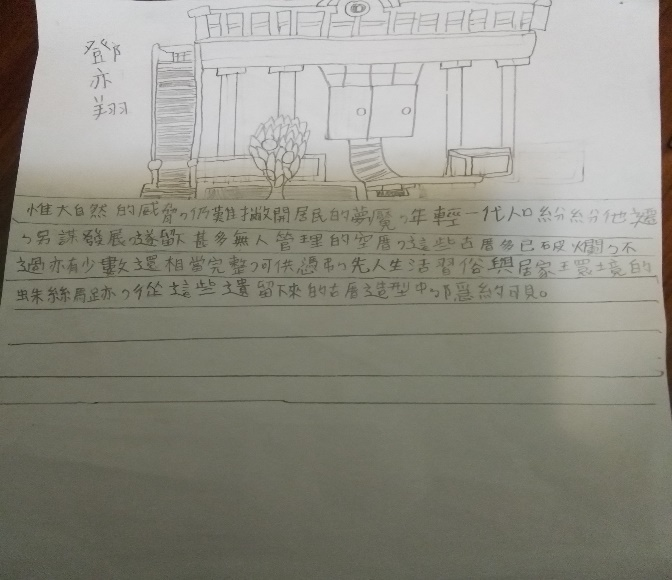 鄧亦翔
惟大自然的威脅,仍難撇開居民的夢魘,年輕一代人口紛紛他遷
,另謀發展,遂留甚多無人管理的空厝,這些古厝多已破爛,不
過亦有少數還相當完整,可供憑弔,先人生活習俗與居家環境的
蛛絲馬跡,從這些遺留下來的古厝造型中,隱約可見。